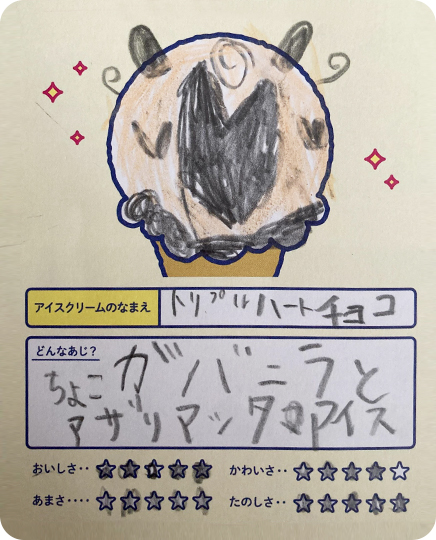 アイスクリームのなまえ
トリプルハートチョコ
どんなあじ？
ちょこガバニラと
アザリアッタアイス
おいしさ‥ ★★★★★
かわいさ‥ ★★★★☆
あまさ‥‥ ★★★★★
たのしさ‥ ★★★★★